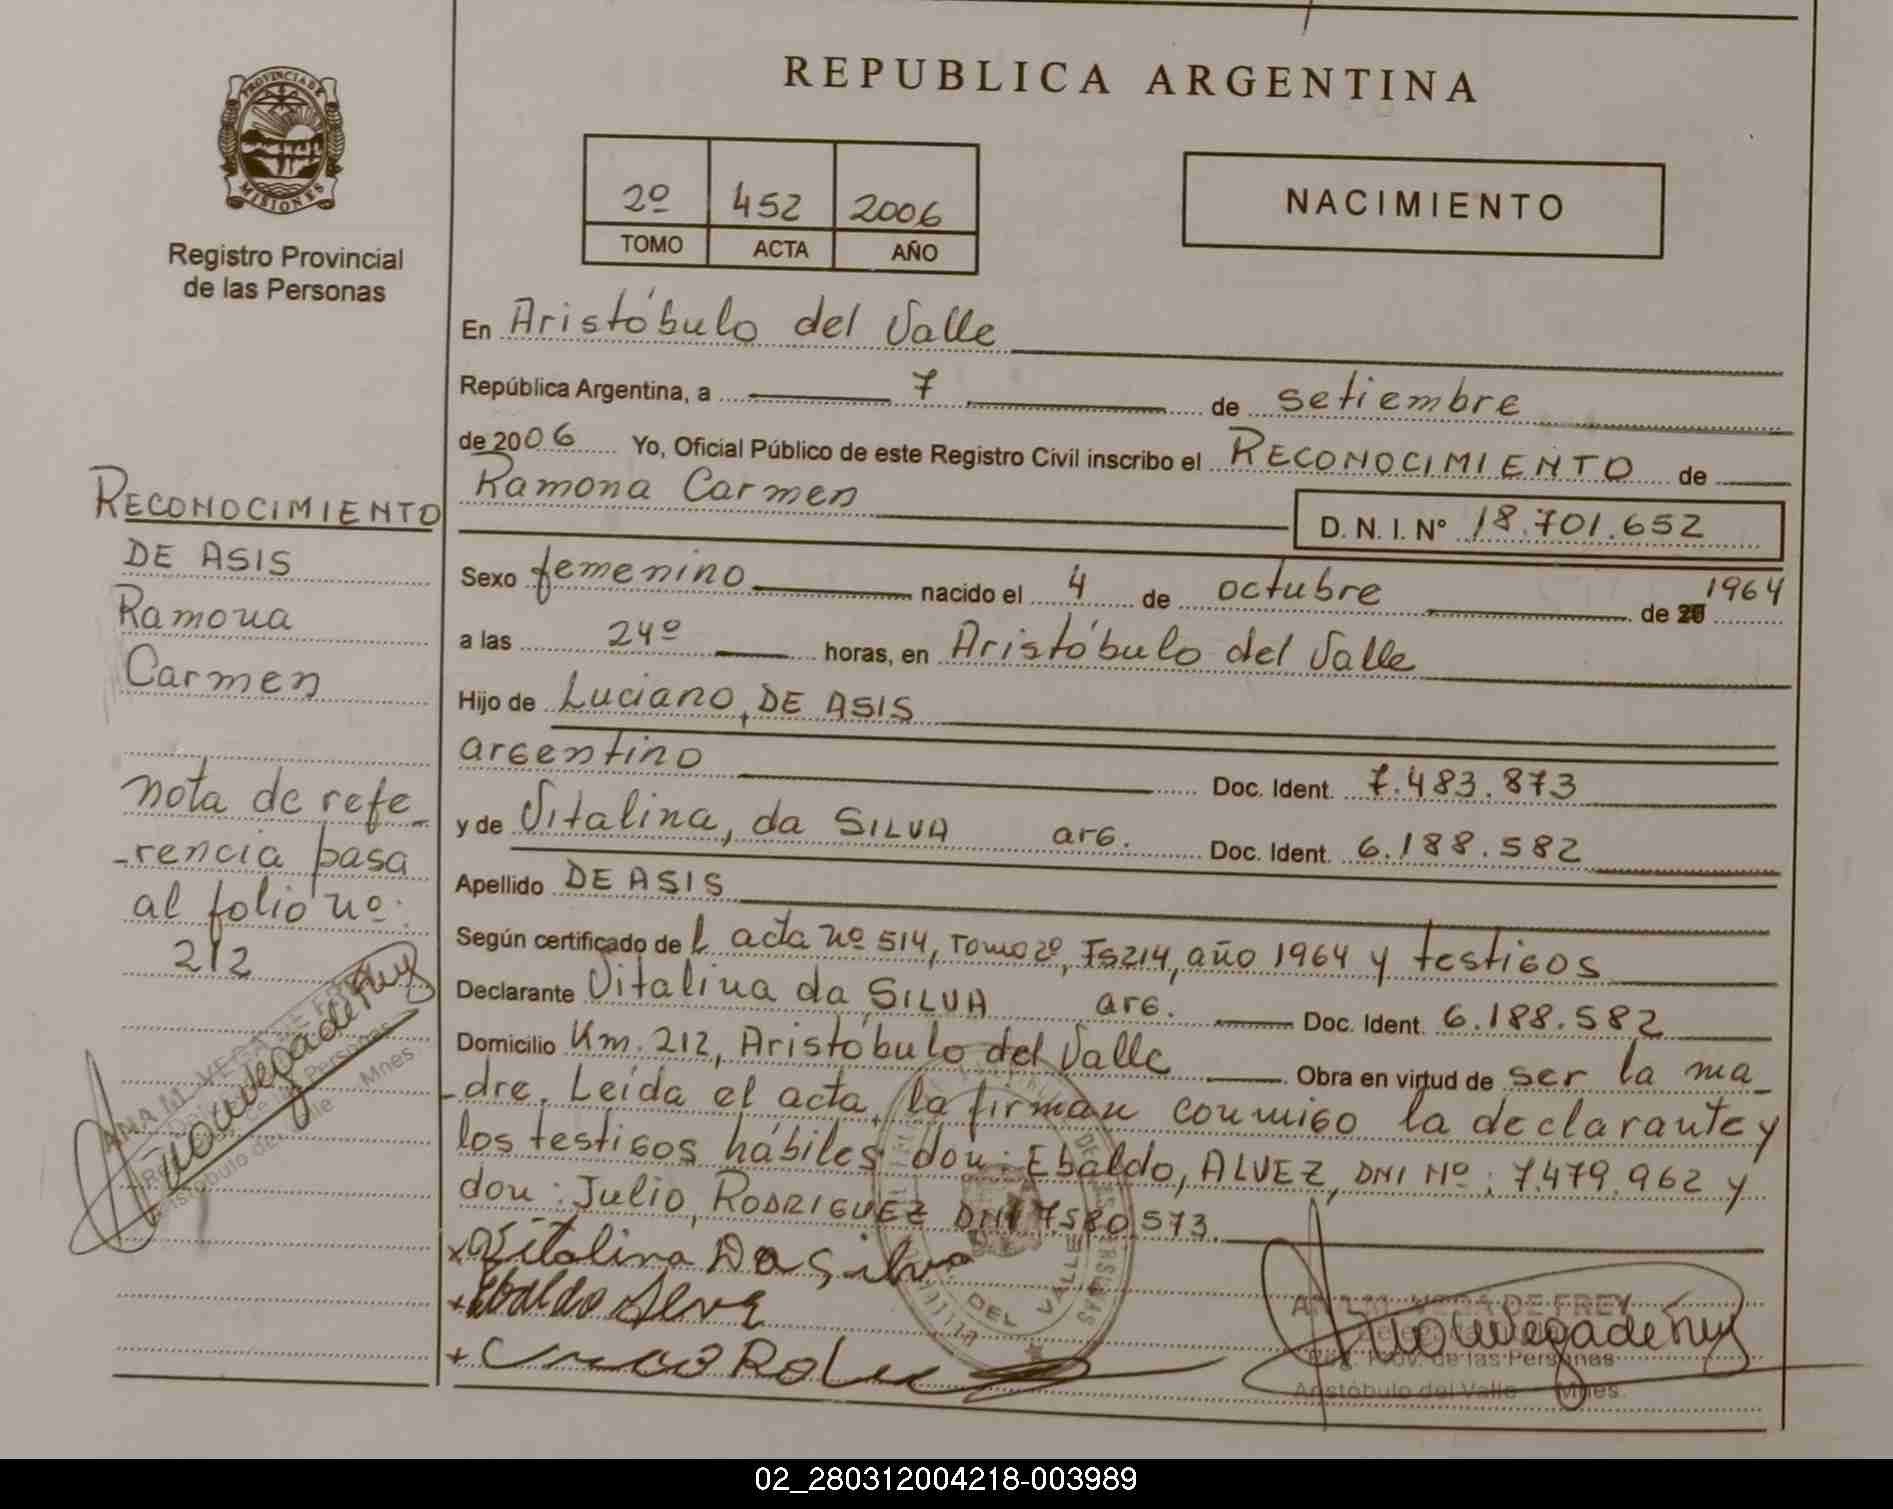 REPUBLICA ARGENTINA
PROVINCIA DE
MISIONES
Registro Provincial
de las Personas
2º 452 2006
TOMO ACTA AÑO
NACIMIENTO
En Aristóbulo del Valle
República Argentina, a 7 de setiembre
de 2006 Yo, Oficial Público de este Registro Civil inscribo el RECONOCIMIENTO de
Ramona Carmen
D. N. I. Nº 18.701.652
Sexo femenino nacido el 4 de octubre de 20 1964
a las 24º horas, en Aristóbulo del Valle
Hijo de Luciano, DE ASIS
argentino Doc. Ident. 7.483.873
y de Vitalina, da SILVA arg. Doc. Ident. 6.188.582
Apellido DE ASIS
Según certificado de l acta nº 514, Tomo 2º, Fs 214, año 1964 y testigos
Declarante Vitalina da SILVA arg. Doc. Ident. 6.188.582
Domicilio Km. 212, Aristóbulo del Valle Obra en virtud de ser la ma_
_dre. Leída el acta, la firman conmigo la declarante y
los testigos hábiles don: Ebaldo, ALVEZ, DNI Nº: 7.479.962 y
don: Julio, RODRIGUEZ DNI 7580.573.
x Vitalina Da Silva
DEL VALLE
ANA M. VEGA DE FREY
Reg. Prov. de las Personas
Aristóbulo del Valle Mnes.
RECONOCIMIENTO
DE ASIS
Ramona
Carmen
nota de refe_
_rencia pasa
al folio nº:
212
ANA M. VEGA DE FREY
Aristóbulo del Valle Mnes
02_280312004218-003989